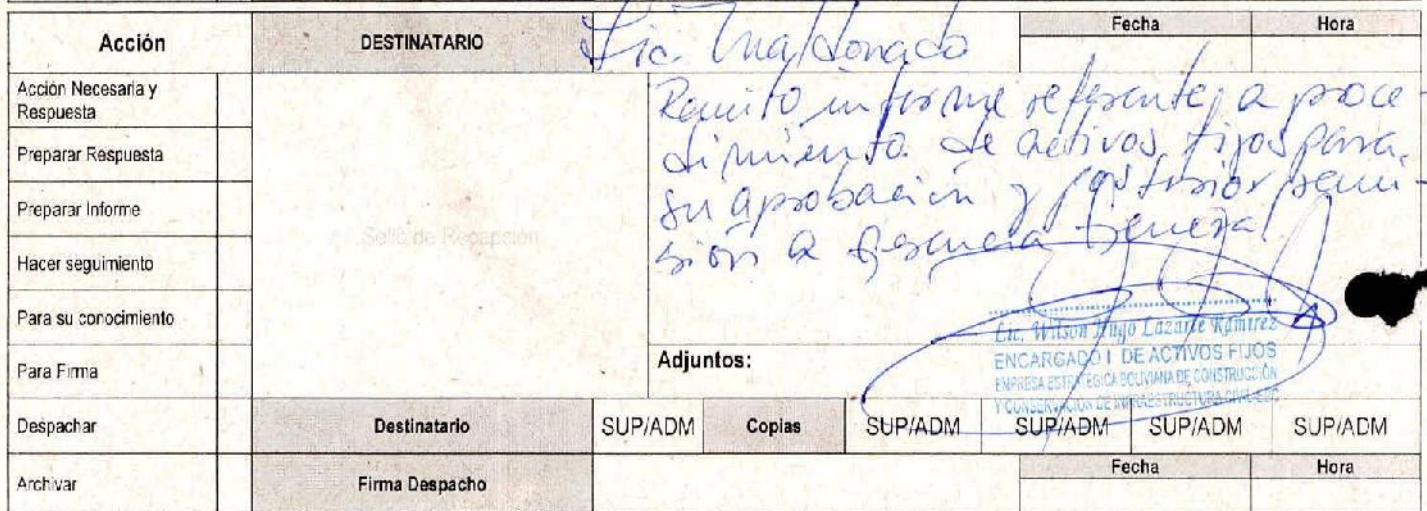 Acción
DESTINATARIO
Lic. Maldonado
Fecha
Hora
Acción Necesaria y
Respuesta
Preparar Respuesta
Preparar Informe
Hacer seguimiento
Para su conocimiento
Para Firma
Despachar
Archivar
Sello de Recepción
Remito informe referente a proce-
dimiento de activos fijos para
su aprobación y posterior remi-
sión a Gerencia General.
Lic. Wilson Hugo Lazarte Ramirez
ENCARGADO I DE ACTIVOS FIJOS
EMPRESA ESTRATÉGICA BOLIVIANA DE CONSTRUCCIÓN
Y CONSERVACIÓN DE INFRAESTRUCTURA CIVIL
Adjuntos:
Destinatario
SUP/ADM
Copias
SUP/ADM
SUP/ADM
SUP/ADM
SUP/ADM
Firma Despacho
Fecha
Hora